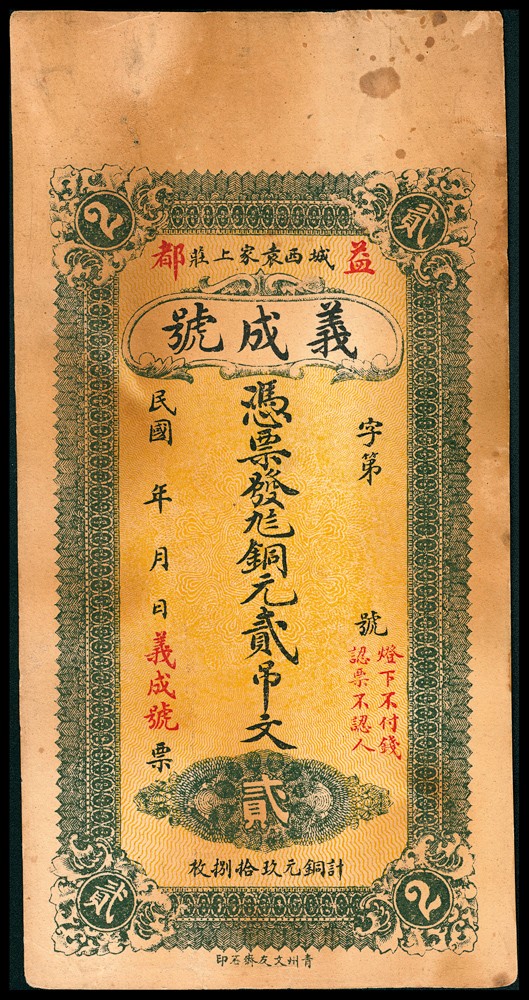 益都
城西袁家上莊
義成號
字第 號
憑票發九八銅元貳吊文
民國 年 月 日義成號票
燈下不付錢
認票不認人
貳
計銅元玖拾捌枚
青州文友齋石印
2
貳
貳
2